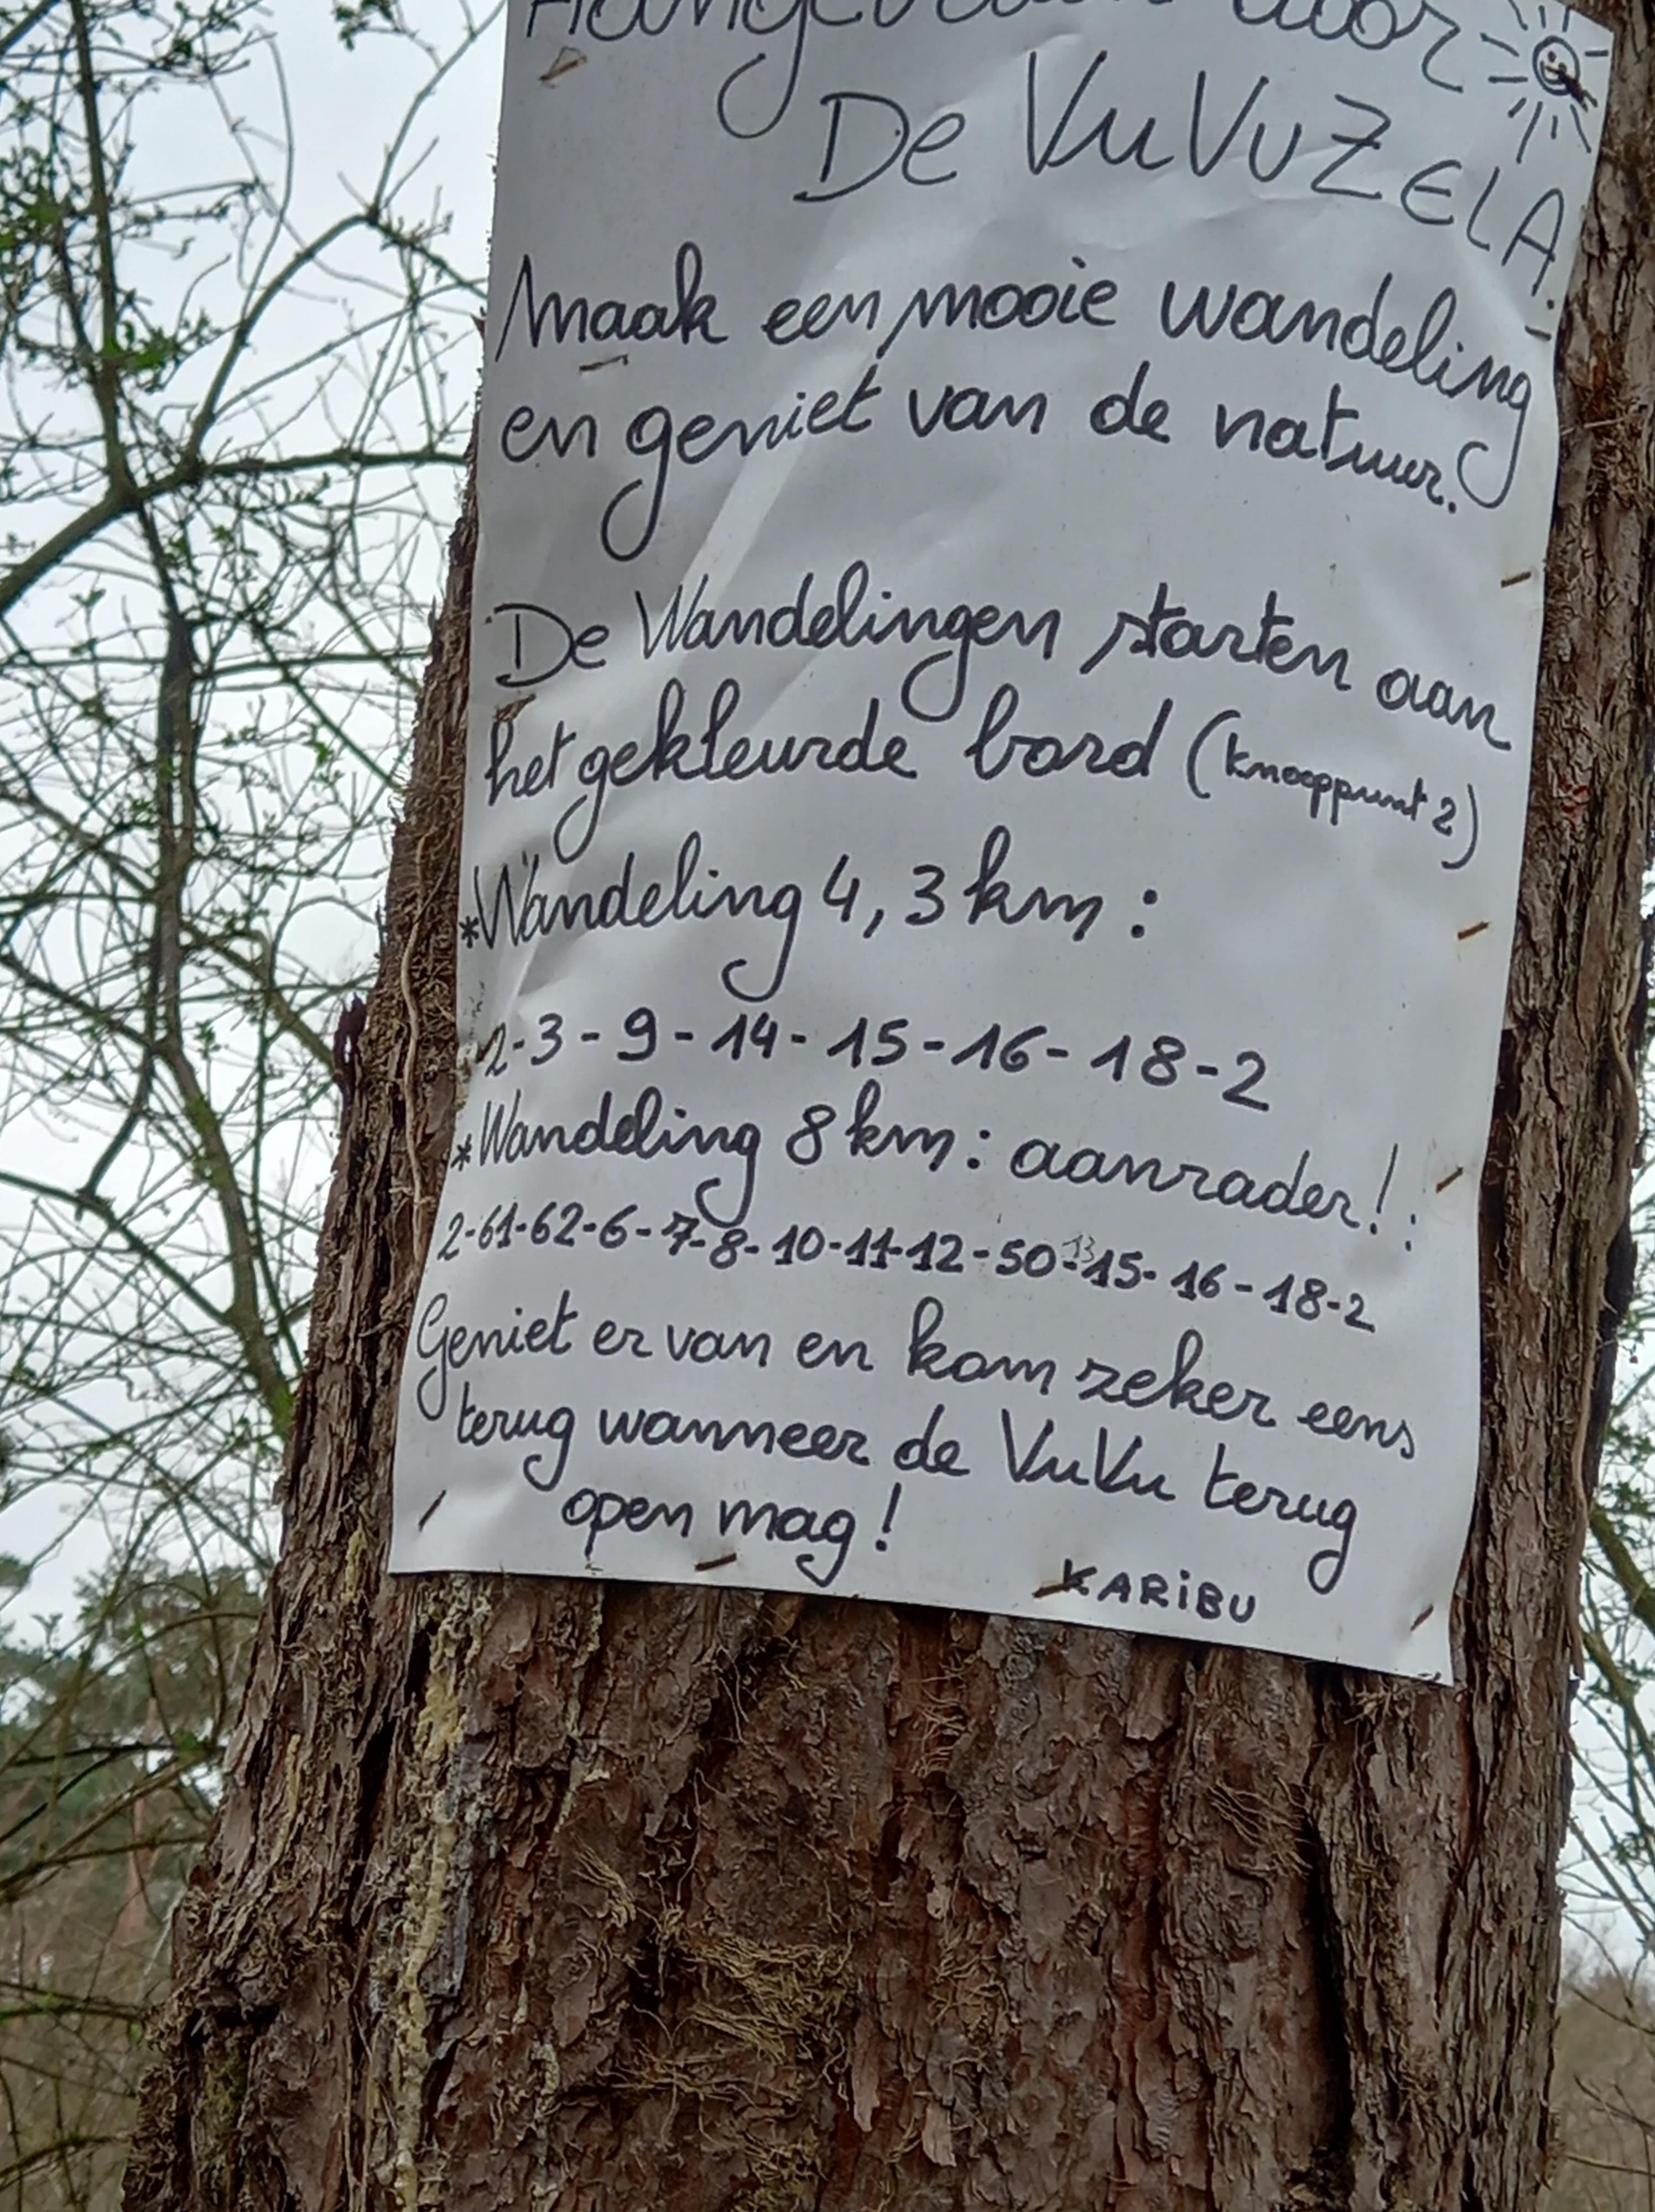 door
De VuVuZELA:
Maak een mooie wandeling
en geniet van de natuur.
De Wandelingen starten aan
het gekleurde bord (knooppunt 2)
*Wandeling 4,3 km :
2-3-9-14-15-16-18-2
*Wandeling 8 km: aanrader!:
2-61-62-6-7-8-10-11-12-50-13-15-16-18-2
Geniet er van en kom zeker eens
terug wanneer de VuVu terug
open mag!
KARiBU